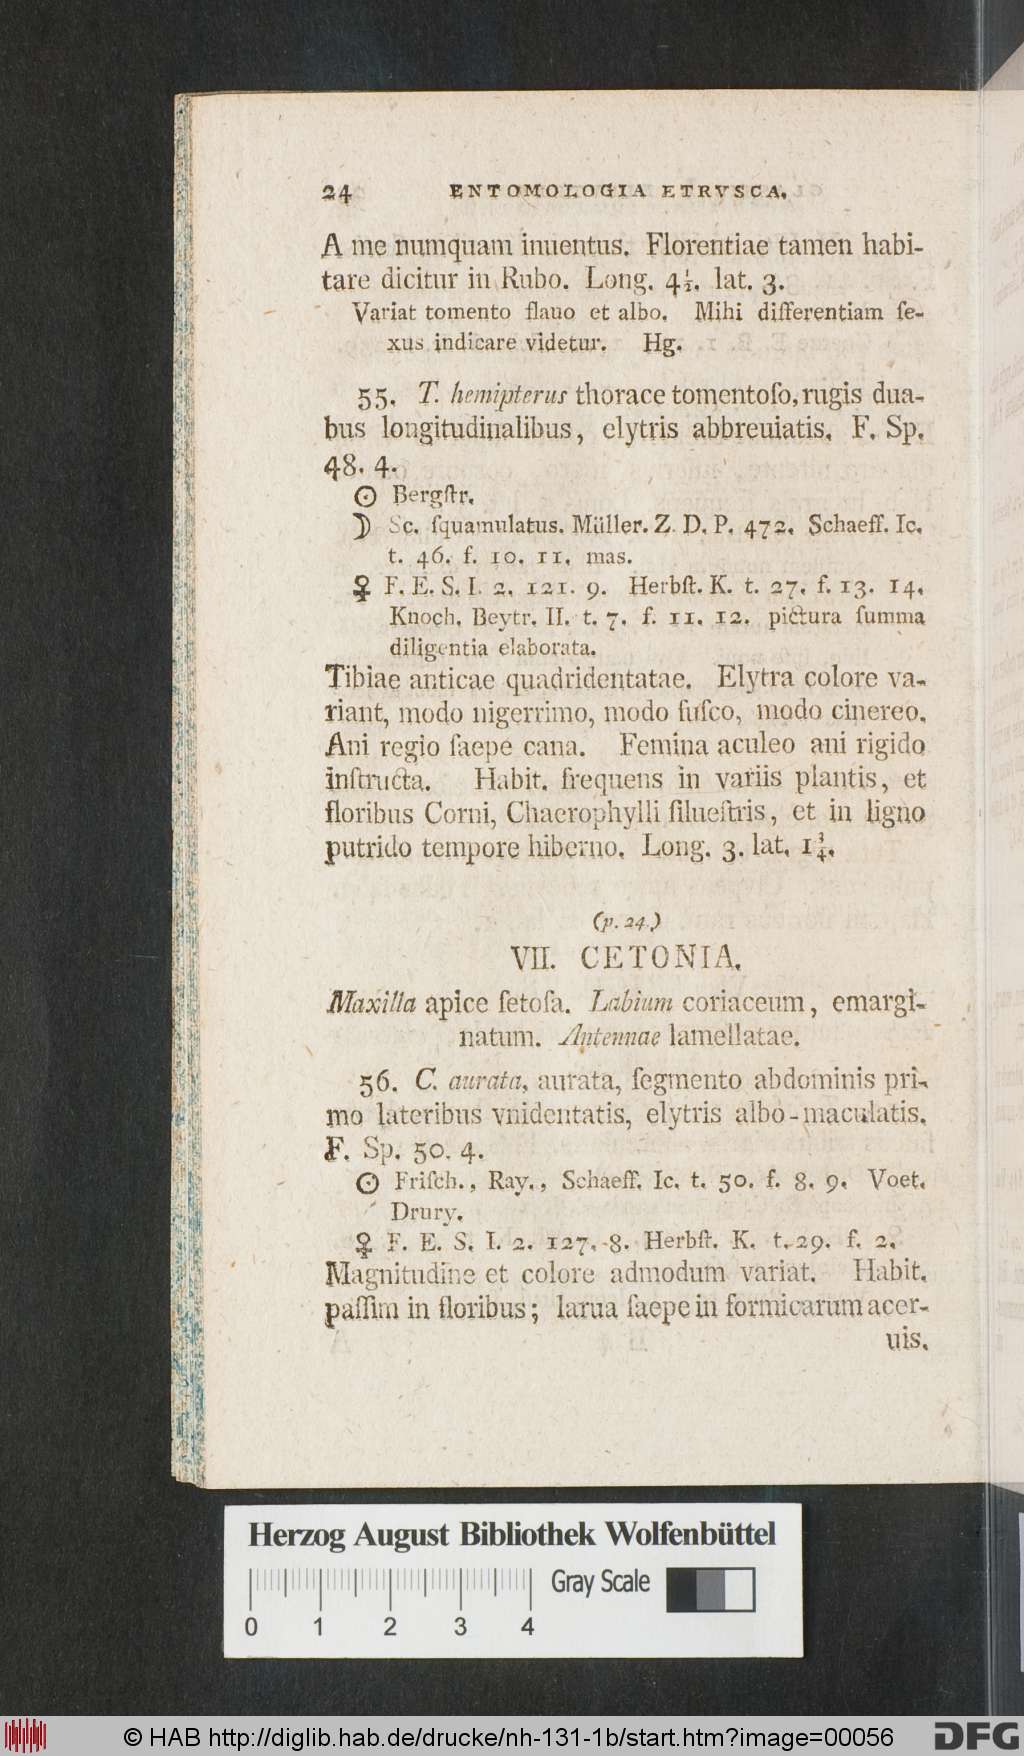 24 ENTOMOLOGIA ETRVSCA.
A me numquam inuentus. Florentiae tamen habi-
tare dicitur in Rubo. Long. 4½. lat. 3.
Variat tomento flauo et albo. Mihi differentiam ſe-
xus indicare videtur. Hg.
55. T. hemipterus thorace tomentoſo, rugis dua-
bus longitudinalibus, elytris abbreuiatis. F. Sp.
48. 4.
☉ Bergſtr.
☽ Sc. ſquamulatus. Müller. Z. D. P. 472. Schaeff. Ic.
t. 46. f. 10. 11. mas.
♀ F. E. S. I. 2. 121. 9. Herbſt. K. t. 27. f. 13. 14.
Knoch. Beytr. II. t. 7. f. 11. 12. pictura ſumma
diligentia elaborata.
Tibiae anticae quadridentatae. Elytra colore va-
riant, modo nigerrimo, modo fuſco, modo cinereo.
Ani regio ſaepe cana. Femina aculeo ani rigido
inſtructa. Habit. frequens in variis plantis, et
floribus Corni, Chaerophylli ſilueſtris, et in ligno
putrido tempore hiberno. Long. 3. lat. 1¾.
(p. 24.)
VII. CETONIA.
Maxilla apice ſetoſa. Labium coriaceum, emargi-
natum. Antennae lamellatae.
56. C. aurata, aurata, ſegmento abdominis pri-
mo lateribus vnidentatis, elytris albo-maculatis.
F. Sp. 50. 4.
☉ Friſch., Ray., Schaeff. Ic. t. 50. f. 8. 9. Voet.
Drury.
♀ F. E. S. I. 2. 127. 8. Herbſt. K. t. 29. f. 2.
Magnitudine et colore admodum variat. Habit.
paſſim in floribus; larua ſaepe in formicarum acer-
uis.
Herzog August Bibliothek Wolfenbüttel
Gray Scale
0 1 2 3 4
© HAB http://diglib.hab.de/drucke/nh-131-1b/start.htm?image=00056
DFG